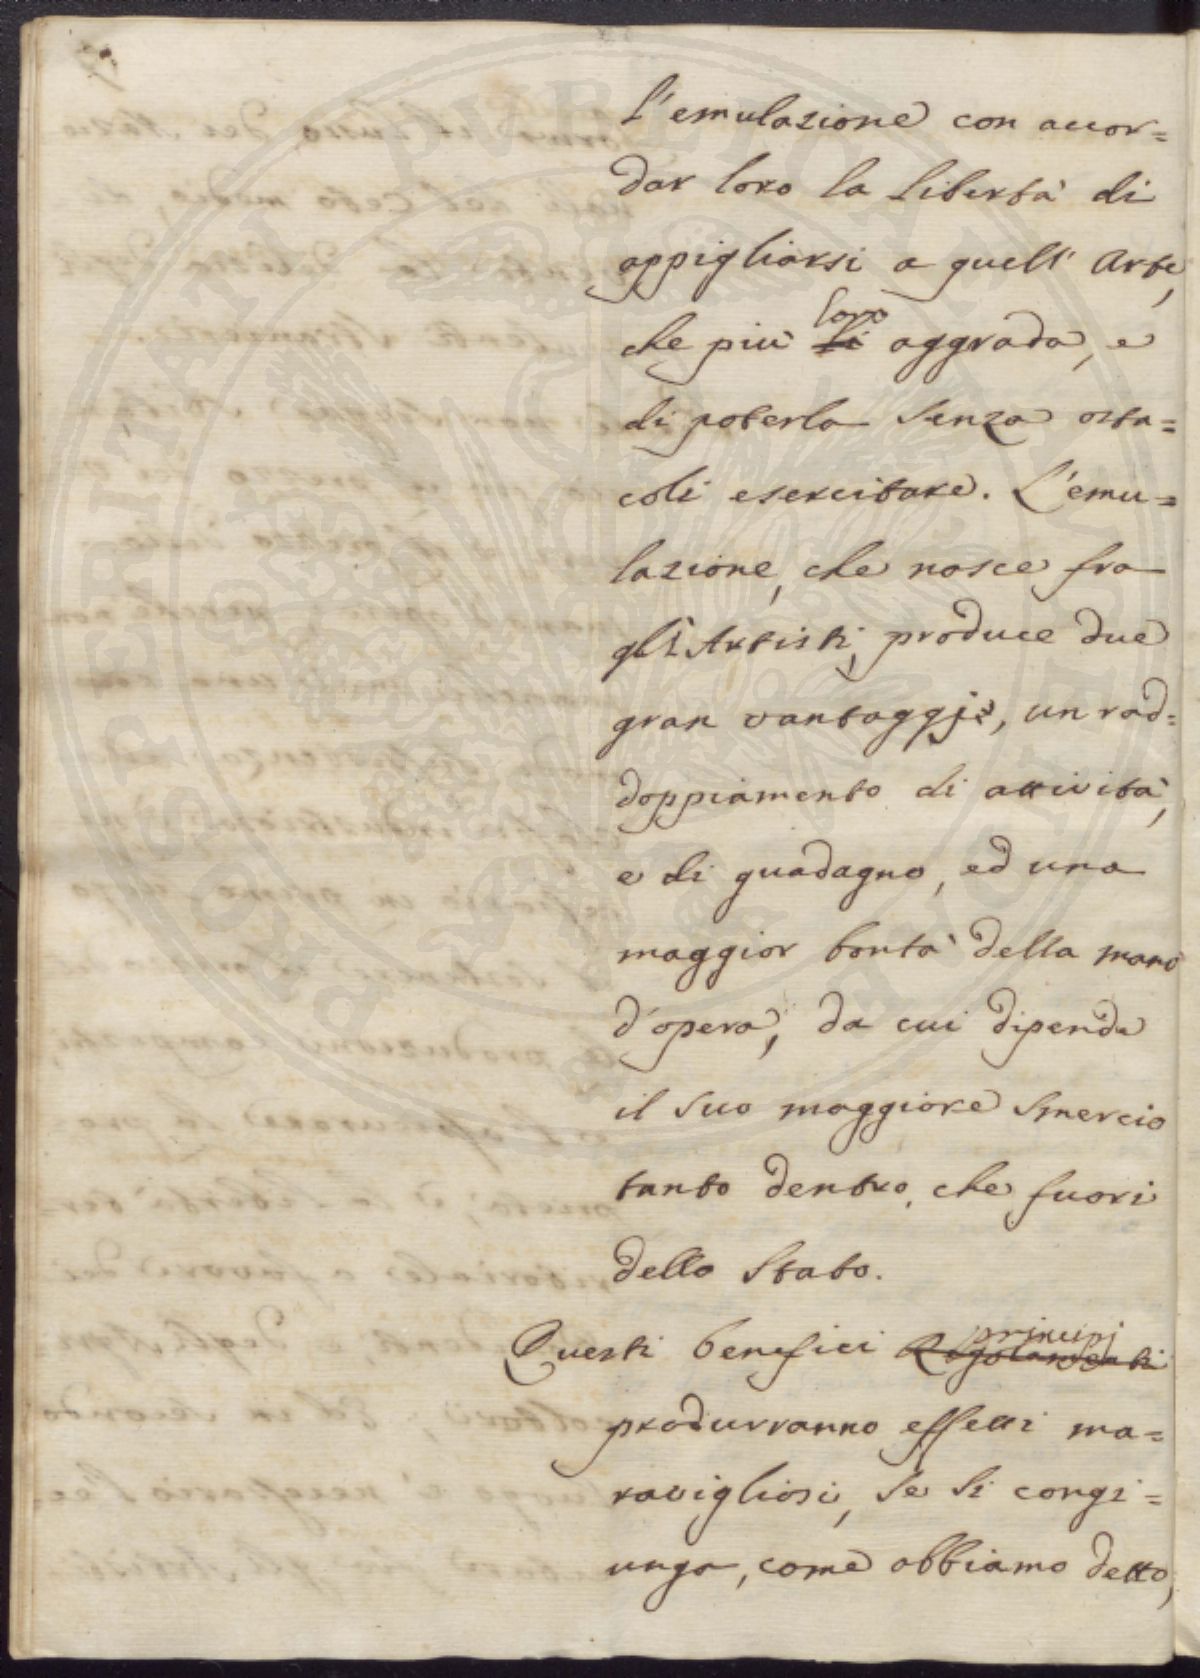 l'emulazione con accor=
dar loro la libertà di
appigliarsi a quell' Arte,
che più li loro aggrada, e
di poterla senza osta=
coli esercitare. L'emu=
lazione, che nasce fra
gli Artisti, produce due
gran vantaggj, un rad=
doppiamento di attività,
e di guadagno, ed una
maggior bontà della mano
d'opera, da cui dipende
il suo maggiore smercio
tanto dentro, che fuori
dello Stato.
Questi benefici Regolamenti principj
produrranno effetti ma=
ravigliosi, se si congi=
unga, come abbiamo detto,